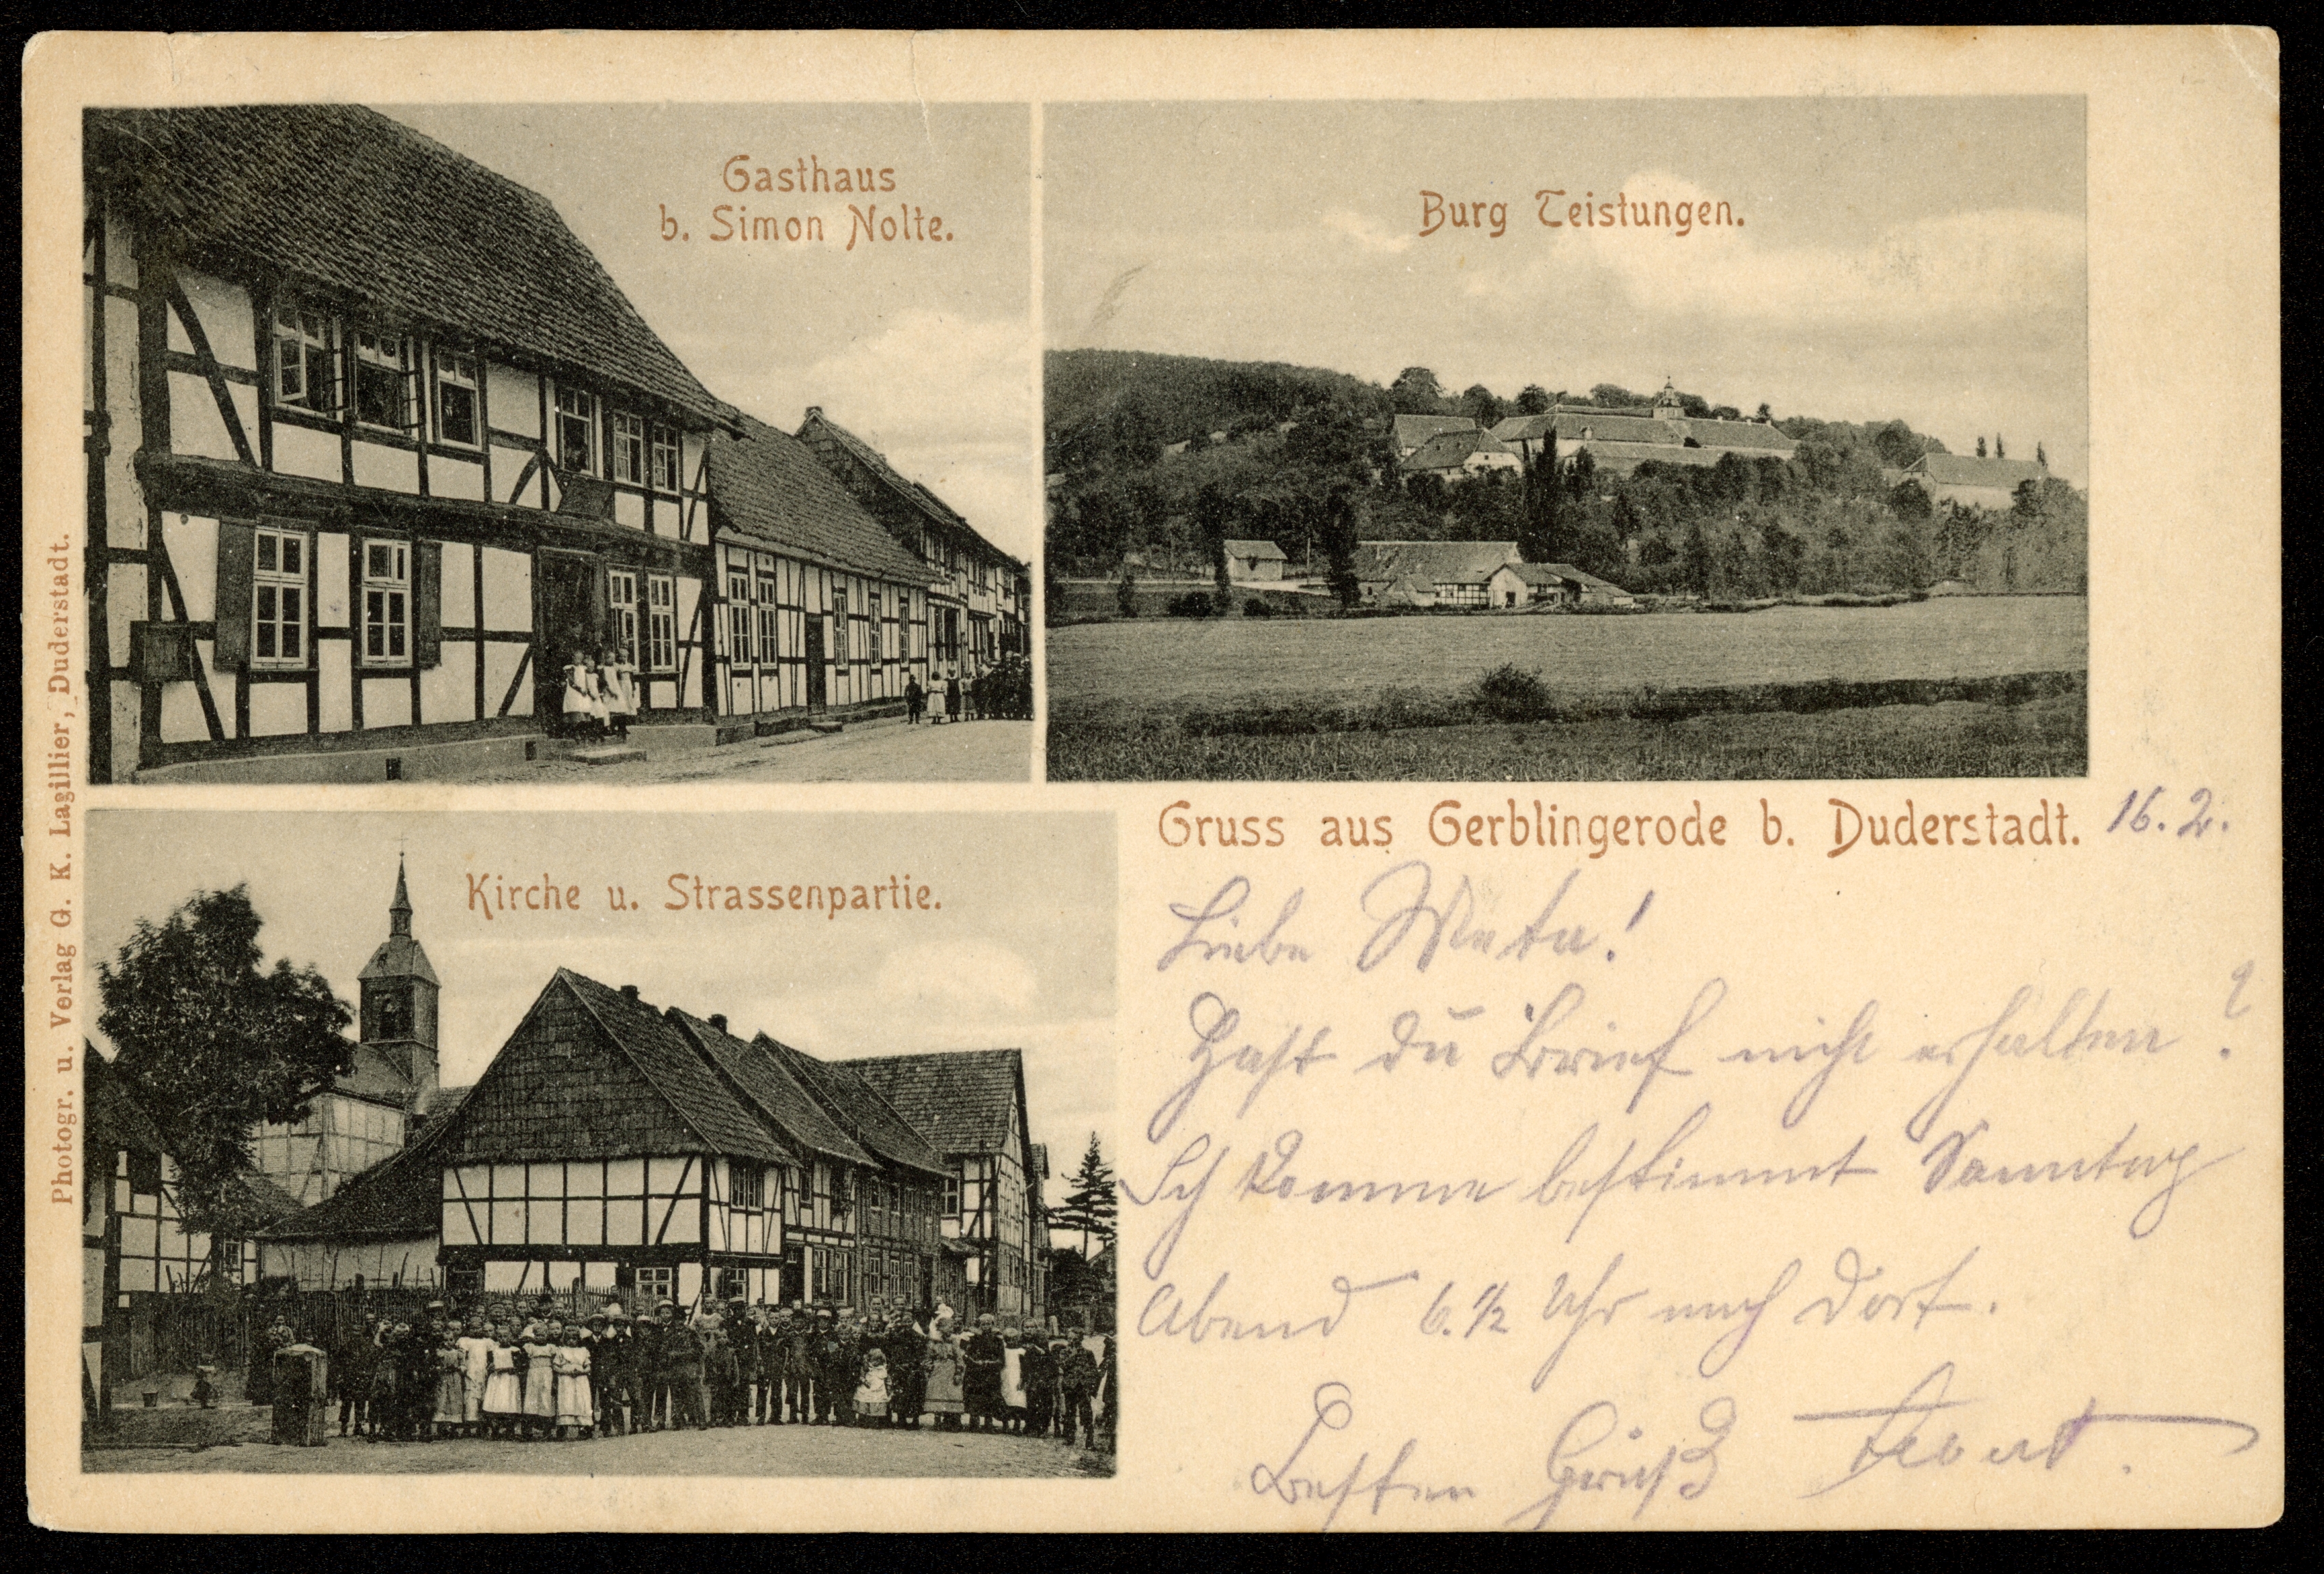 Gasthaus
b. Simon Nolte.
Burg Teistungen.
Kirche u. Strassenpartie.
Photogr. u. Verlag G. K. Lagillier, Duderstadt.
Gruss aus Gerblingerode b. Duderstadt. 16.2.
Liebe Meta!
Hast du Brief nicht erhalten?
Ich komme bestimmt Sonntag
Abend 6.½ Uhr nach dort.
Besten Gruß